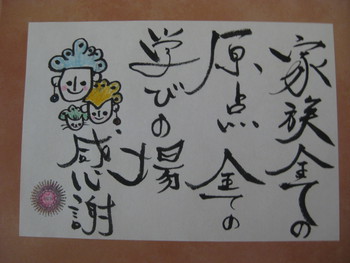 家族全ての
原点全ての
学びの場
感謝